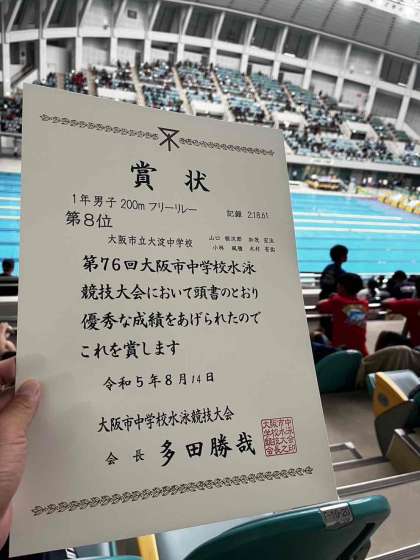 賞状
1年男子 200m フリーリレー
第8位
記録 2:18.61
大阪市立大淀中学校
第76回大阪市中学校水泳
競技大会において頭書のとおり
優秀な成績をあげられたので
これを賞します
令和5年8月14日
大阪市中学校水泳競技大会
会長 多田勝哉
大阪市中
学校水泳
競技大会
会長之印